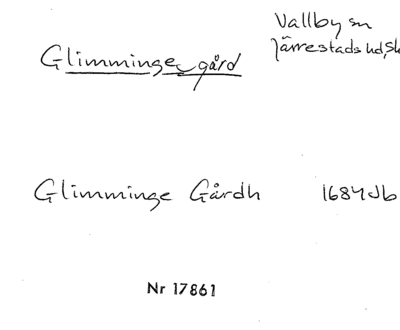 Vallby sn
Glimminge gård
Järrestads hd, Sk
Glimminge Gårdh 1684 Jb
Nr 17861